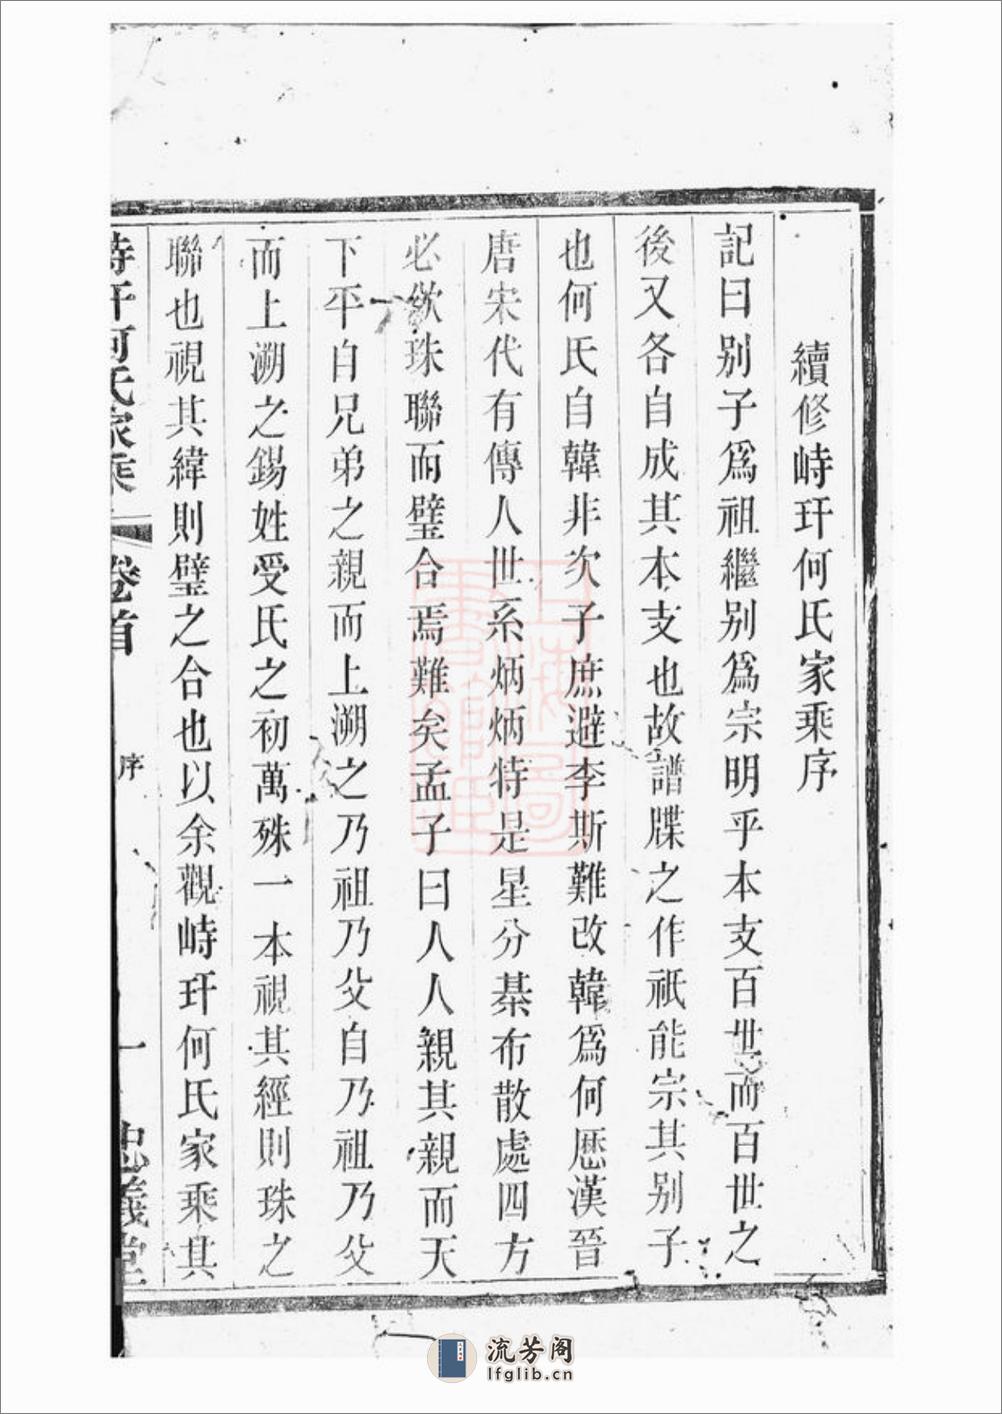 續修峙玕何氏家乘序
記曰别子爲祖繼别爲宗明乎本支百世而百世之
後又各自成其本支也故譜牒之作祇能宗其别子
也何氏自韓非次子庶避李斯難改韓爲何歷漢晉
唐宋代有傳人世系炳炳特是星分棊布散處四方
必欲珠聯而璧合焉難矣孟子曰人人親其親而天
下平自兄弟之親而上溯之乃祖乃父自乃祖乃父
而上溯之錫姓受氏之初萬殊一本視其經則珠之
聯也視其緯則璧之合也以余觀峙玕何氏家乘其
峙玕何氏家乘 卷首 序 一 忠義堂
上海圖書館藏
流芳阁
lfglib.cn